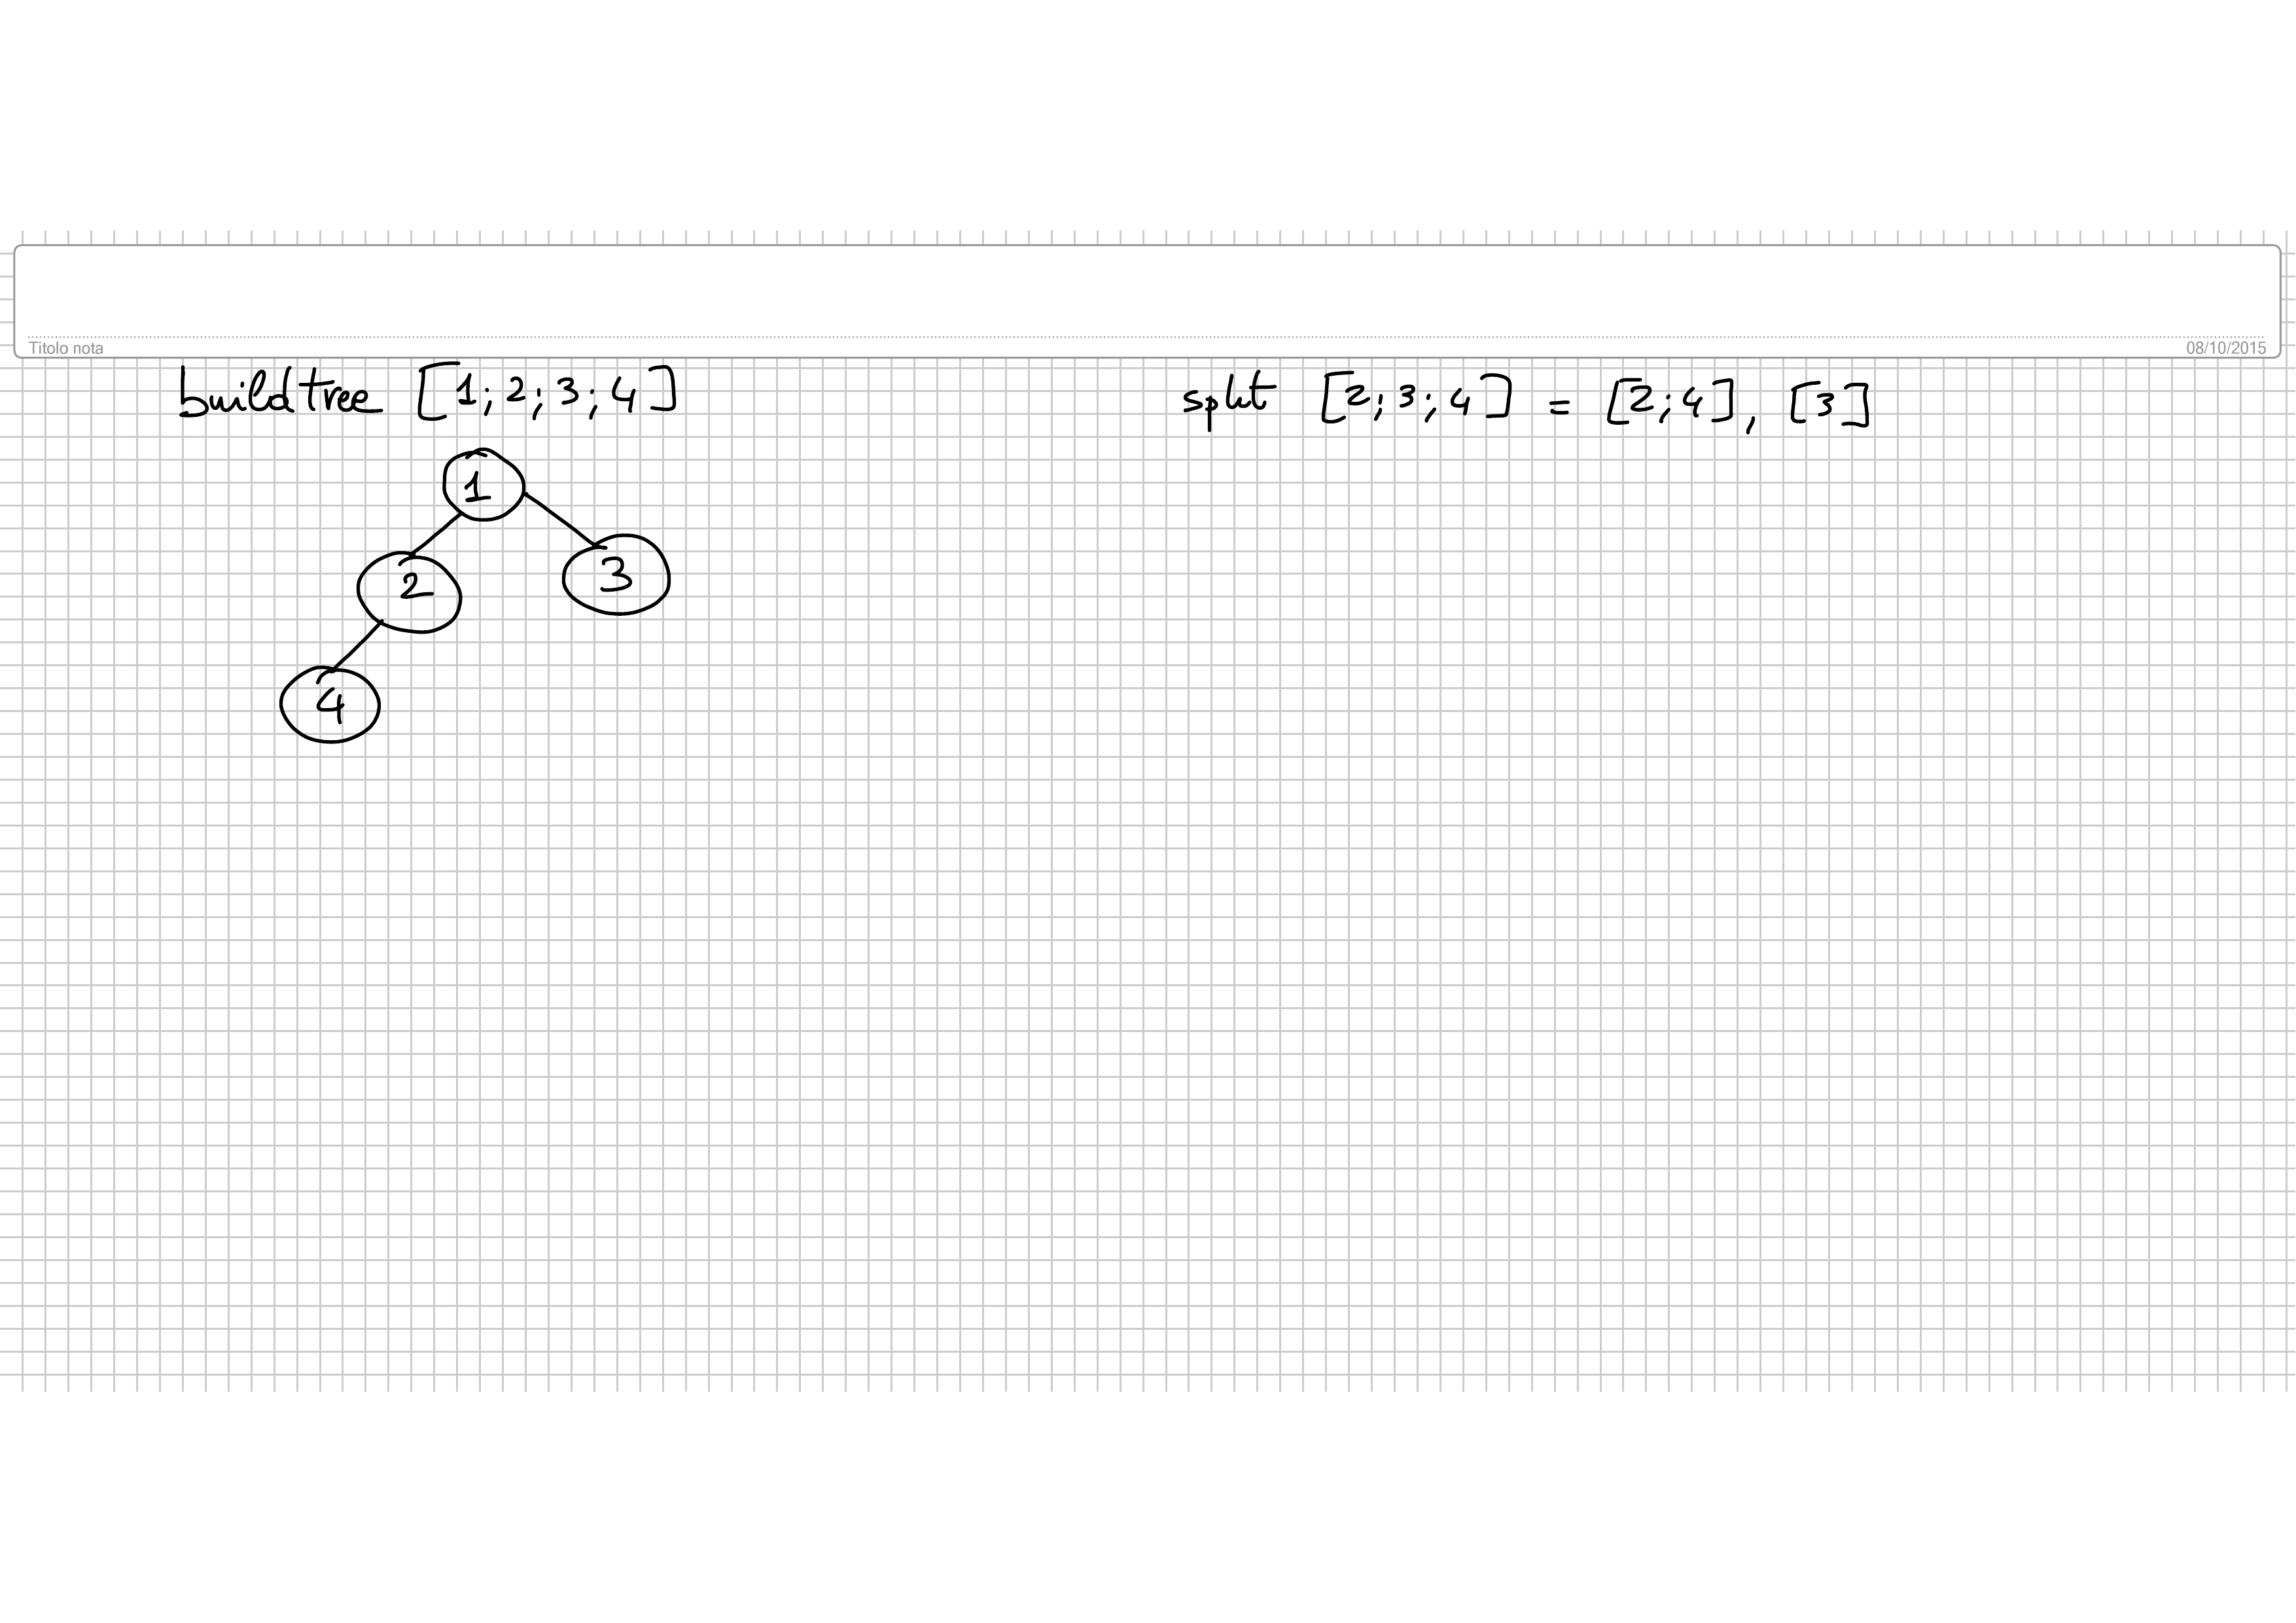 Titolo nota 08/10/2015
buildtree [1;2;3;4] split [2;3;4] = [2;4], [3]
1
2 3
4